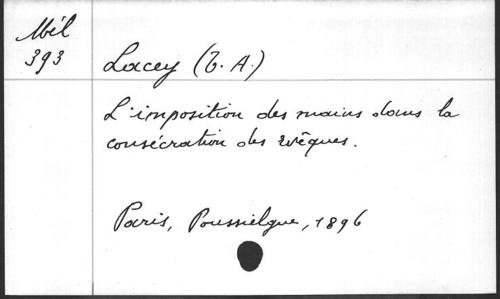 Mél
393
Lacey (T. A.)
L'imposition des mains dans la
consécration des évêques.
Paris, Poussielgue, 1896